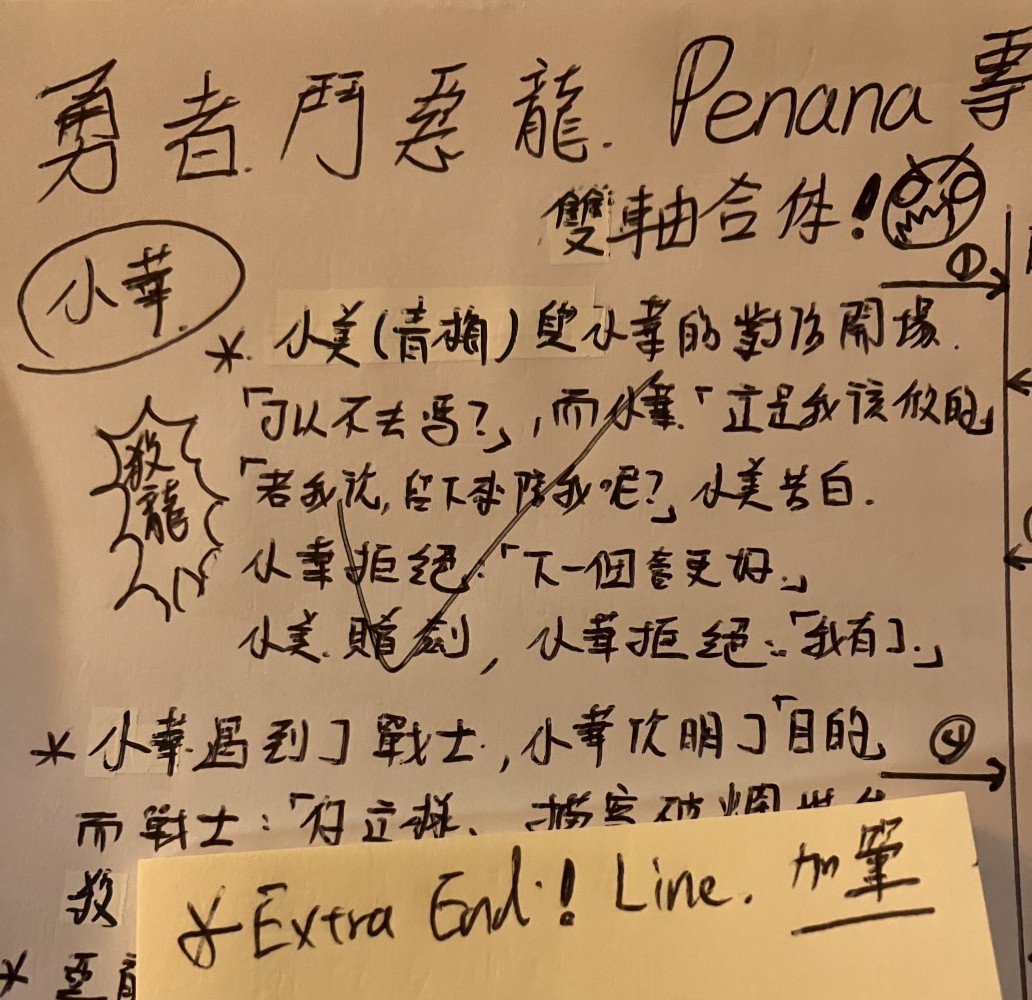 勇者鬥惡龍. Penana 專
雙軸合体!
①
小華.
*. 小美(青梅)與小華的對話開場.
「可以不去嗎?」,而小華.「這是我該做的」
殺龍
「若我說,留下來陪我呢?」小美告白.
小華拒絕:「下一個會更好.」
小美.贈劍,小華拒絕:「我有了.」
* 小華遇到了戰士.,小華說明了「目的
④
而戰士:「
殺
* 惡
*Extra End! Line. 加筆